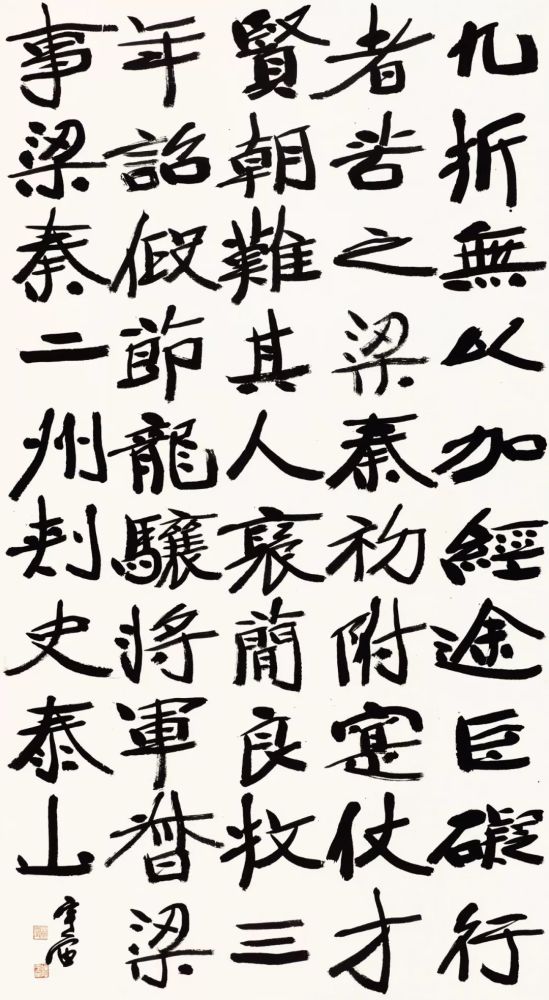 九折無以加經途巨礙行
者苦之梁秦初附寔仗才
賢朝難其人褒簡良牧三
年詔假節龍驤將軍督梁
事梁秦二州刺史泰山